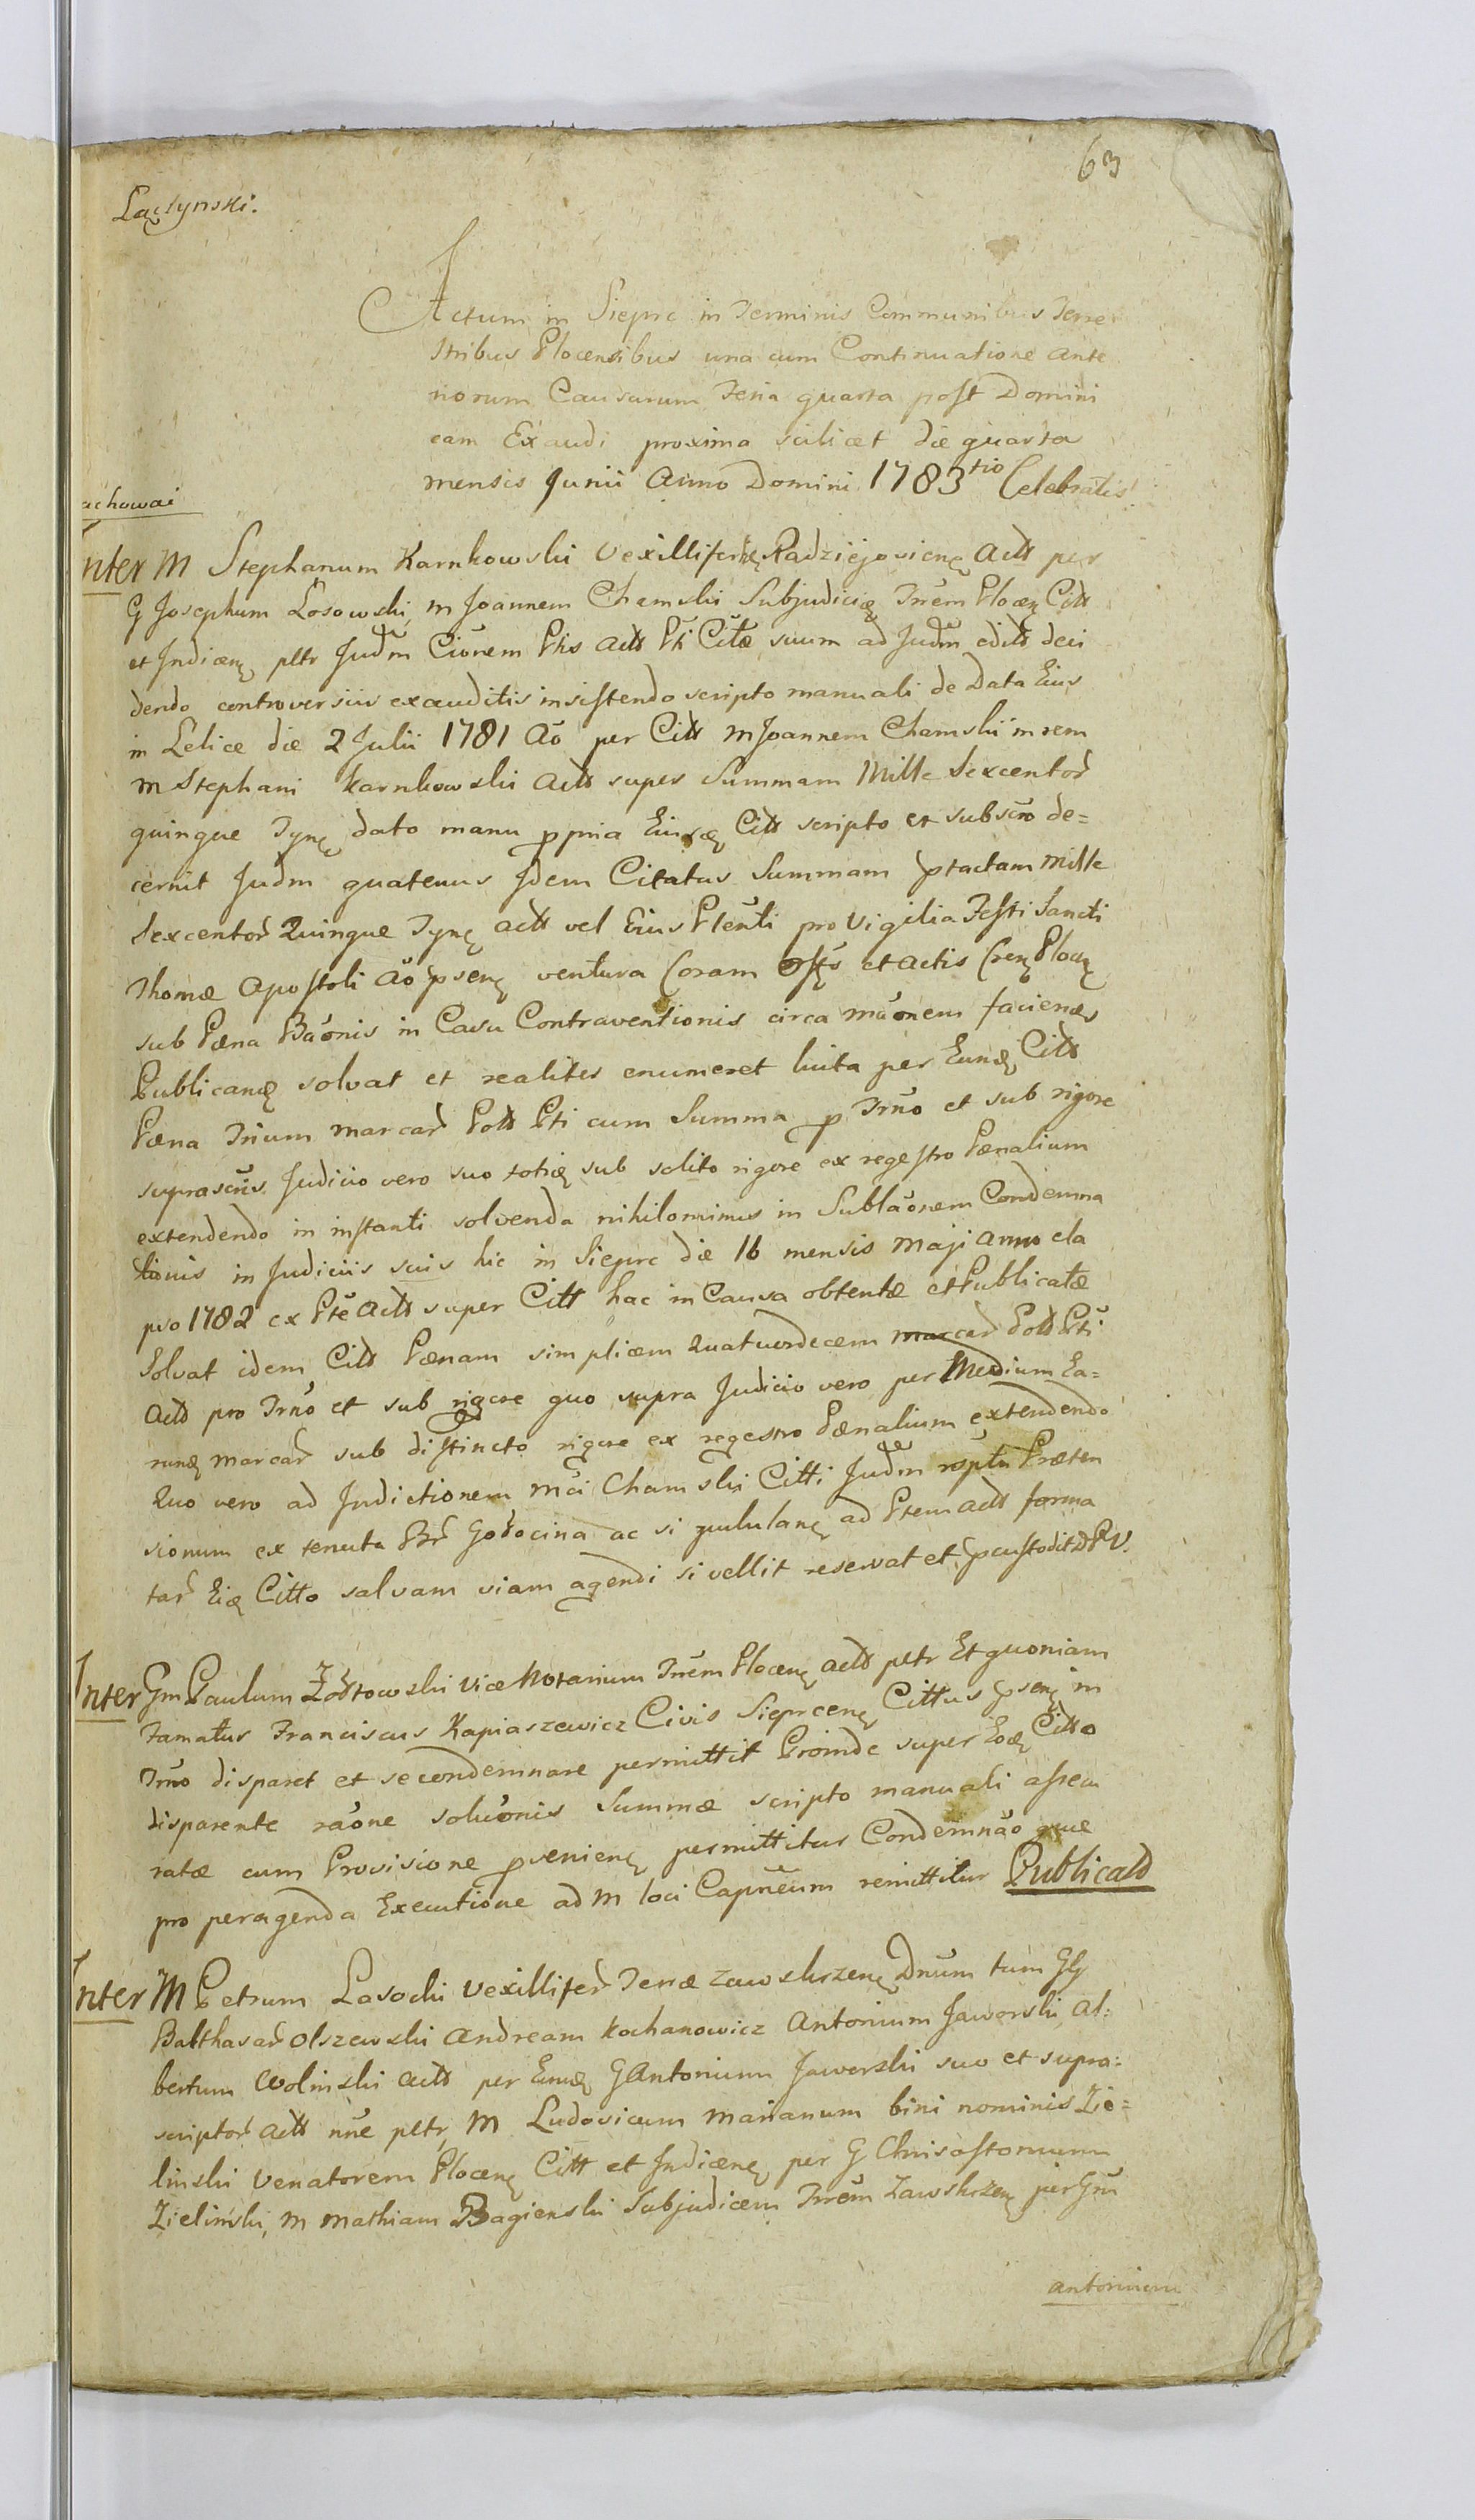 63
Łączynski.
Actum in Sieprc in Terminis Communibus Terre
stribus Plocensibus una cum Continuatione ante
riorum Causarum Feria quarta post Domini
cam Exaudi proxima scilicet die quarta
mensis Junii Anno Domini 1783tio Celebratis
achowai
Inter M Stephanum Karnkowski Vexilliferũ Radziejoviens Actt per
G Josephum Łosowski, M Joannem Chamski Subjudicẽ Trrem Plocen Citt
et Indicen pltr Judm Cionem Ptis Actt Pti Citæ suum ad Judm edidt deci
dendo controversiis exauditis insistendo scripto manuali de Data Eius
in Lelice die 2 Julii 1781 Aõ per Citt M Joannem Chamski in rem
M Stephani Karnkowski Actt super Summam Mille Sexcentor
quinque Tyn dato manu ppria Eiusd Citt scripto et subscro de=
cernit Judm quatenus Idem Citatus Summam ptactam Mille
Sexcentor Quinque Tyn Actt vel Eius Plenti pro Vigilia Festi Sancti
Thomæ Apostoli Aõ psen ventura Coram Offs et Actis Cren Plocen
sub Pæna Baõnis in Casu Contraventionis circa maõnem faciend
Publicand solvat et realiter enumeret luita per Eund Citt
Pæna Trium marcar Poll Pti cum Summa p Trño et sub rigore
suprascris Judicio vero suo totid sub solito rigore ex regestro Pænalium
extendendo in instanti solvenda nihilominus in Sublaõnem Condemna
tionis in Judiciis suis hic in Sieprc die 16 mensis Maji Anno ela
pso 1782 ex Pte Actt super Citt hac in Causa obtentæ et Publicatæ
Solvat idem Citt Pænam simplicem Quatuordecem marcar Poll Pti
Actt pro Trño et sub rigore quo supra Judicio vero per Medium Ea=
rund Marcar sub distincto rigore ex regestro Pænalium extendendo
Quo vero ad Indictionem Mci Chamski Citti Judm rsptu Præten
sionum ex tenuta Br Godocina ac si pullulan ad Ptem Actt forma
tar Eid Citto salvam viam agendi si vellit reservat et pcustodit DPV.
Inter Gm Paulum Żółtowski ViceNotarium Trrem Plocen Actt pltr Et quoniam
Famatus Franciscus Kapiaszewicz Civis Sieprcen Cittus psen in
Trño disparet et se condemnare permittit Proinde super Eod Citto
disparente raõne soluõnis Summæ scripto manuali assecu
ratæ cum Provisione pvenien permittitur Condemnaõ quæ
pro peragenda Executione ad M loci Capneum remittitur Publicatd
Inter M Petrum Lasocki Vexillifer Terræ Zawskrzen Dnum tum GG
Balthasar Olszewski Andream Kochanowicz Antonium Jaworski, Al=
bertum Wolinski Actt per Eund G Antonium Jaworski suo et supra=
scriptor Actt nñe pltr, M Ludovicum Marianum bini nominis Zie=
linski Venatorem Plocen Citt et Indicen per G Chrisostomum
Zieliński, M Mathiam Bagienski Subjudicem Trrem Zawskrzen per Gm
antonium